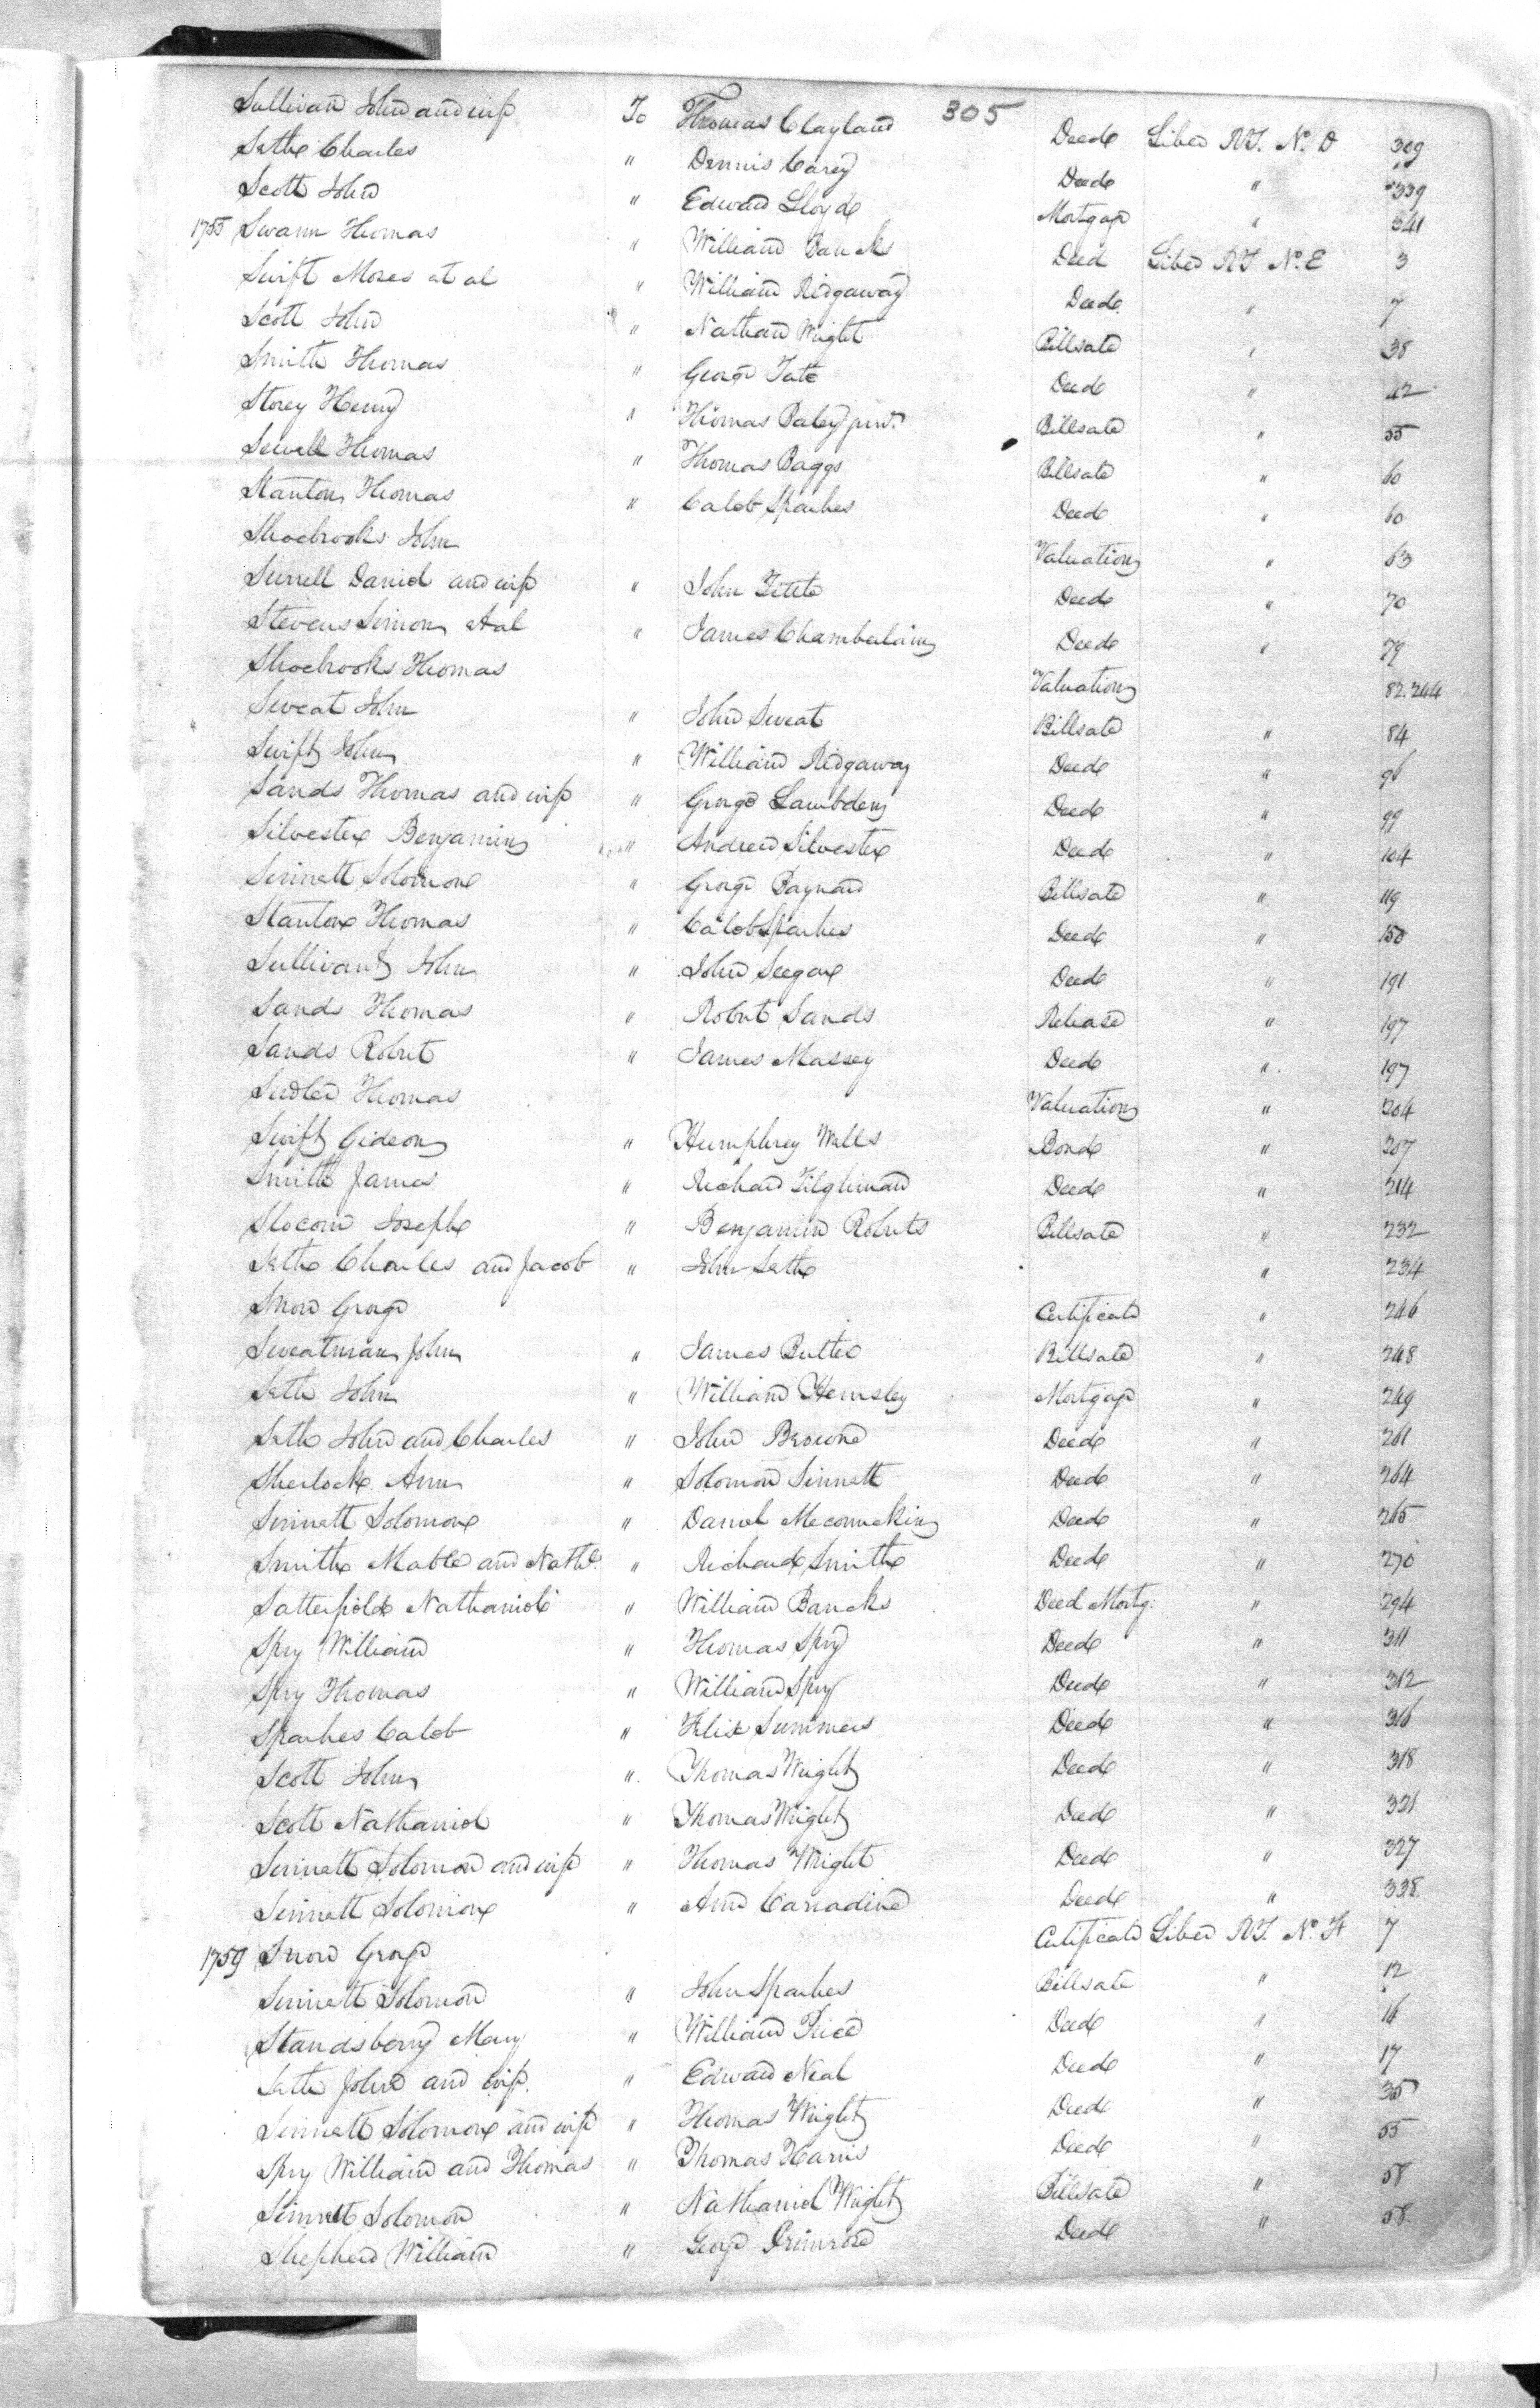 305
Sullivan John and wife To Thomas Clayland Deed Liber RT. No. D 309
Seth Charles " Dennis Carey Deed " 339
Scott John " Edward Lloyd Mortgage " 341
1755 Swann Thomas " William Bancks Deed Liber RT No. E 3
Swift Moses et al " William Ridgaway Deed " 7
Scott John " Nathan Wright Billsale " 38
Smith Thomas " George Tate Deed " 42
Storey Henry " Thomas Baley junr. Billsale " 55
Sewell Thomas " Thomas Baggs Billsale " 60
Stanton Thomas " Caleb Sparkes Deed " 60
Shoebrooks John Valuation " 63
Surrell Daniel and wife " John Deed " 70
Stevens Simon et al " James Chamberlain Deed " 79
Shoebrooks Thomas Valuation 82.244
Sweat John " John Sweat Billsale " 84
Swift John " William Ridgaway Deed " 96
Sands Thomas and wife " George Lambden Deed " 99
Silvester Benjamin " Andrew Silvester Deed " 104
Sinnett Solomon " George Baynard Billsale " 119
Stanton Thomas " Caleb Sparkes Deed " 150
Sullivant John " John Seegar Deed " 191
Sands Thomas " Robert Sands Release " 197
Sands Robert " James Massey Deed " 197
Sudler Thomas Valuation " 204
Swift Gideon " Humphrey Wells Bond " 207
Smith James " Richard Tilghman Deed " 214
Slocom Joseph " Benjamin Roberts Billsale " 232
Seth Charles and Jacob " John Seth " 234
Snow George Certificate " 246
Sweatman John " James Butler Billsale " 248
Seth John " William Hemsley Mortgage " 249
Seth John and Charles " John Browne Deed " 261
Sherlock Ann " Solomon Sinnett Deed " 264
Sinnett Solomon " Daniel Meconnekin Deed " 265
Smith Mable and Nathl. " Richard Smith Deed " 270
Satterfield Nathaniel " William Bancks Deed Mortg. " 294
Spry William " Thomas Spry Deed " 311
Spry Thomas " William Spry Deed " 312
Sparkes Caleb " Felix Summers Deed " 316
Scott John " Thomas Wright Deed " 318
Scott Nathaniel " Thomas Wright Deed " 321
Sinnett Solomon and wife " Thomas Wright Deed " 327
Sinnett Solomon " Ann Carradine Deed " 338
1759 Snow George Certificate Liber RT. No. F 7
Sinnett Solomon " John Sparkes Billsale " 12
Standsberry Mary " William Price Deed " 16
Seth John and wife " Edward Neal Deed " 17
Sinnett Solomon and wife " Thomas Wright Deed " 35
Spry William and Thomas " Thomas Harris Deed " 55
Sinnett Solomon " Nathaniel Wright Billsale " 58
Shepherd William " George Primrose Deed " 58